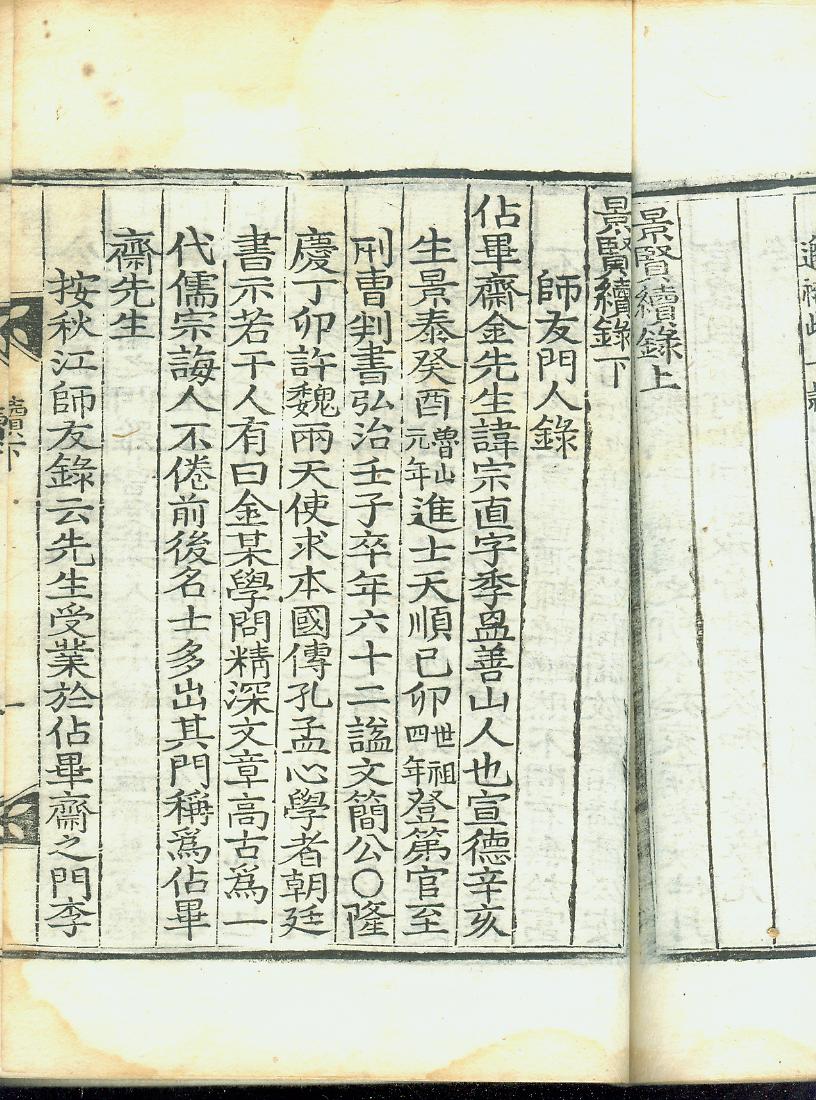 景賢續錄上
景賢續錄下
師友門人錄
佔畢齋金先生諱宗直字季昷善山人也宣德辛亥
生景泰癸酉魯山元年進士天順己卯世祖四年登第官至
刑曹判書弘治壬子卒年六十二謚文簡公〇隆
慶丁卯許魏兩天使求本國傳孔孟心學者朝廷
書示若干人有曰金某學問精深文章高古爲一
代儒宗誨人不倦前後名士多出其門稱爲佔畢
齋先生
按秋江師友錄云先生受業於佔畢齋之門李